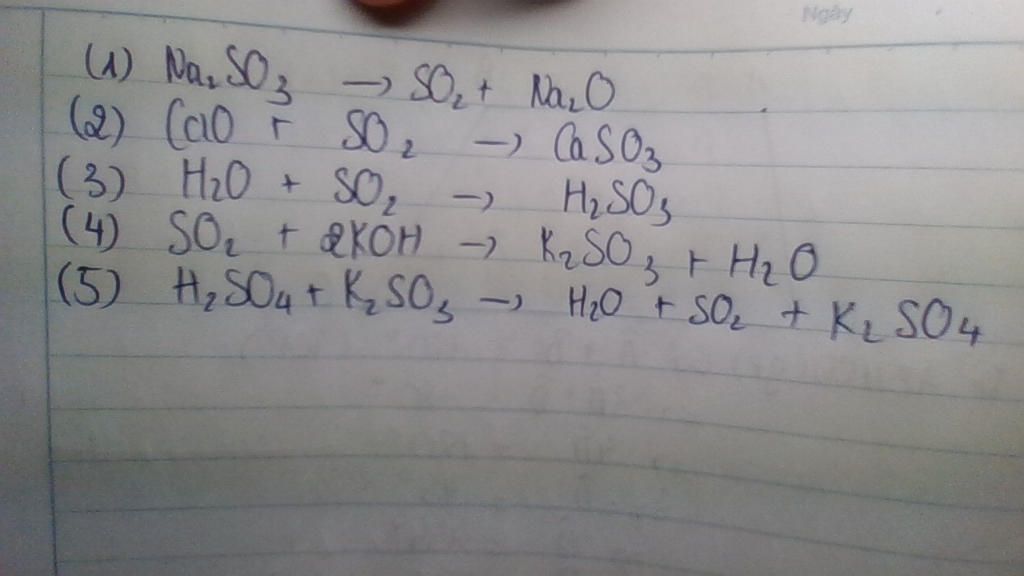 Ngày
(1) Na₂SO₃ → SO₂ + Na₂O
(2) CaO + SO₂ → CaSO₃
(3) H₂O + SO₂ → H₂SO₃
(4) SO₂ + 2KOH → K₂SO₃ + H₂O
(5) H₂SO₄ + K₂SO₃ → H₂O + SO₂ + K₂SO₄